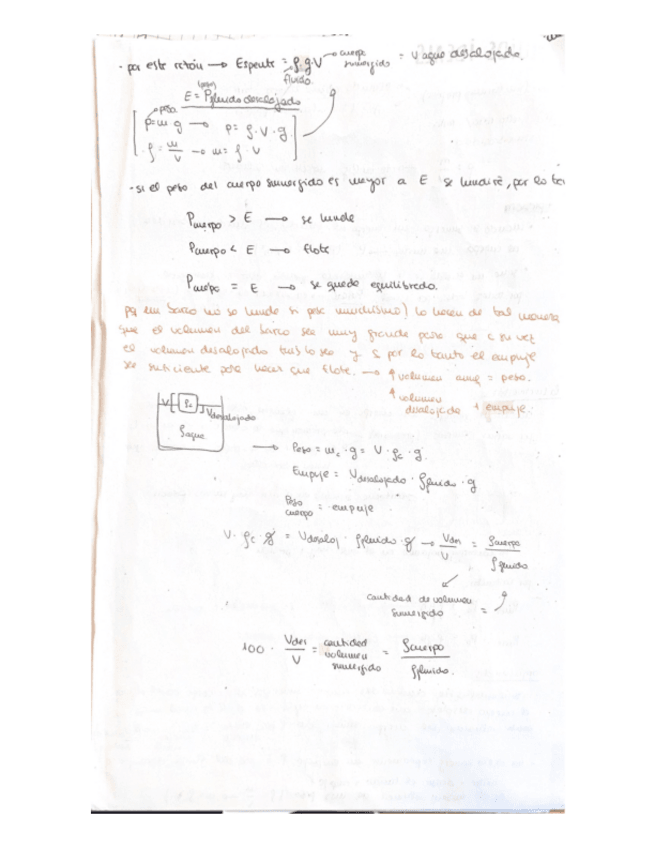 · por esta razón → Empuje = ρ · g · V → cuerpo sumergido = V agua desalojado.
fluido.
(peso)
E = Pfluido desalojado
peso.
p = m · g → p = ρ · V · g.
· ρ = m/V → m = ρ · V
· si el peso del cuerpo sumergido es mayor a E se hundirá, por lo tan
Pcuerpo > E → se hunde
Pcuerpo < E → flota
Pcuerpo = E → se queda equilibrado.
pq un barco no se hunde si pesa muchísimo) lo hacen de tal manera
que el volumen del barco sea muy grande para que a su vez
el volumen desalojado tmb lo sea y por lo tanto el empuje
sea suficiente para hacer que flote. → ↑ volumen = peso.
↑ volumen desalojado ↑ empuje.
V ρc Vdesalojado
ρagua
→ Peso = mc · g = V · ρc · g.
Empuje = Vdesalojado · ρfluido · g
Peso cuerpo = empuje
V · ρc · g = Vdesaloj · ρfluido · g → Vdes/V = ρcuerpo/ρfluido
cantidad de volumen sumergido =
100 · Vdes/V = cantidad volumen sumergido = ρcuerpo/ρfluido.